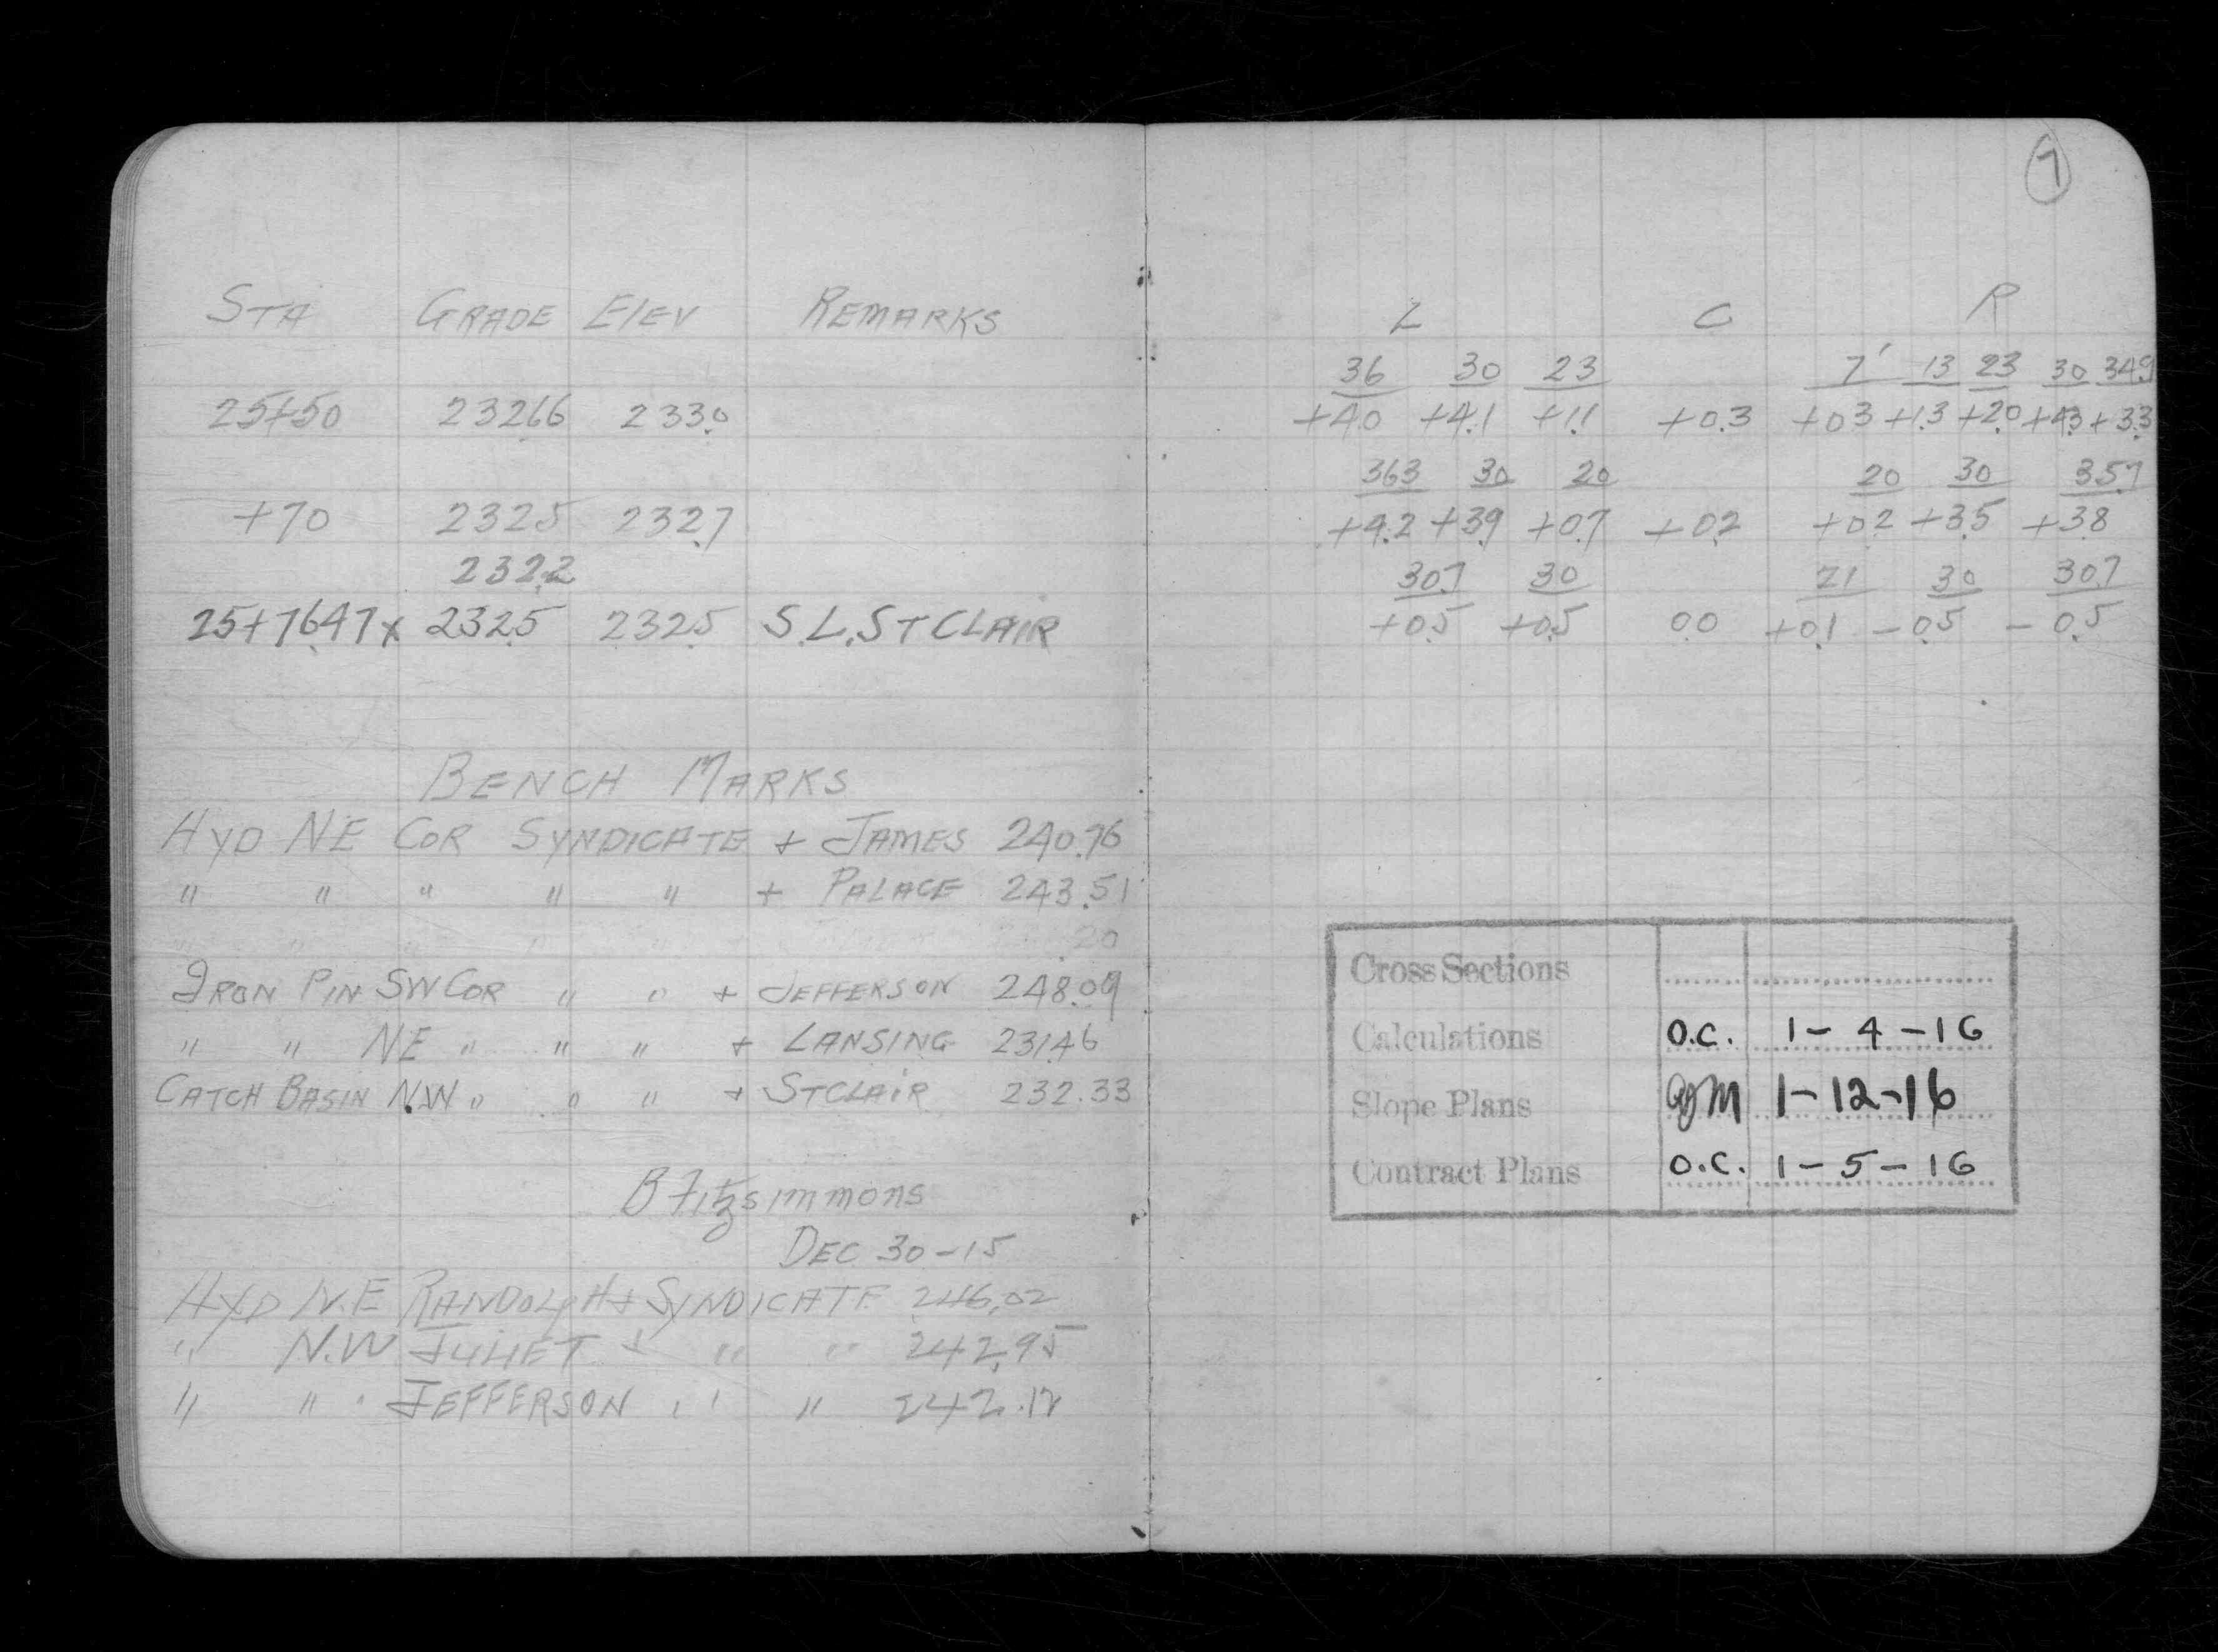 STA GRADE Elev REMARKS
25+50 232.66 233.0
+70 232.5 232.7
232.2
25+76.47 x 232.5 232.5 S.L. ST CLAIR
BENCH MARKS
HYD NE COR SYNDICATE + JAMES 240.76
" " " " " + PALACE 243.51
" " " " " 20
IRON PIN SW COR " " + JEFFERSON 248.09
" " NE " " " + LANSING 231.46
CATCH BASIN N.W " " " + ST CLAIR 232.33
B Fitzsimmons
DEC 30-15
HYD N.E RANDOLPH + SYNDICATE 246.02
" N.W JULIET + " " 242.95
" " " JEFFERSON " " 242.12
7
L C R
36 30 23 7' 13 23 30 34.9
+4.0 +4.1 +1.1 +0.3 +0.3 +1.3 +2.0 +4.3 +3.3
36.3 30 20 20 30 35.7
+4.2 +3.9 +0.7 +0.2 +0.2 +3.5 +3.8
30.7 30 21 30 30.7
+0.5 +0.5 0.0 +0.1 -0.5 -0.5
Cross Sections
Calculations O.C. 1-4-16
Slope Plans 1-12-16
Contract Plans O.C. 1-5-16